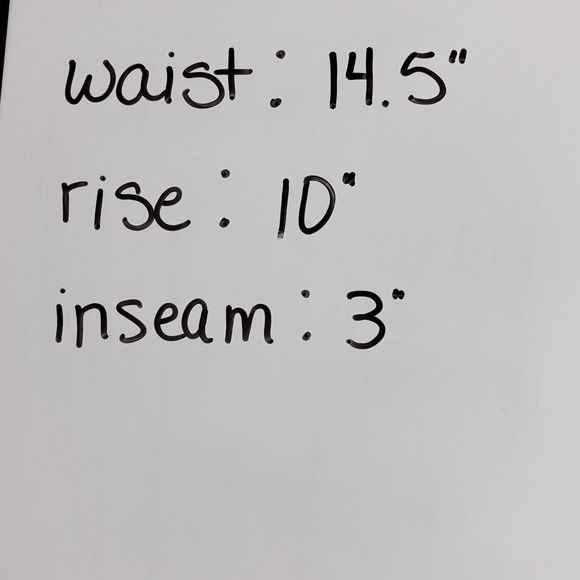 waist: 14.5"
rise: 10"
inseam: 3"